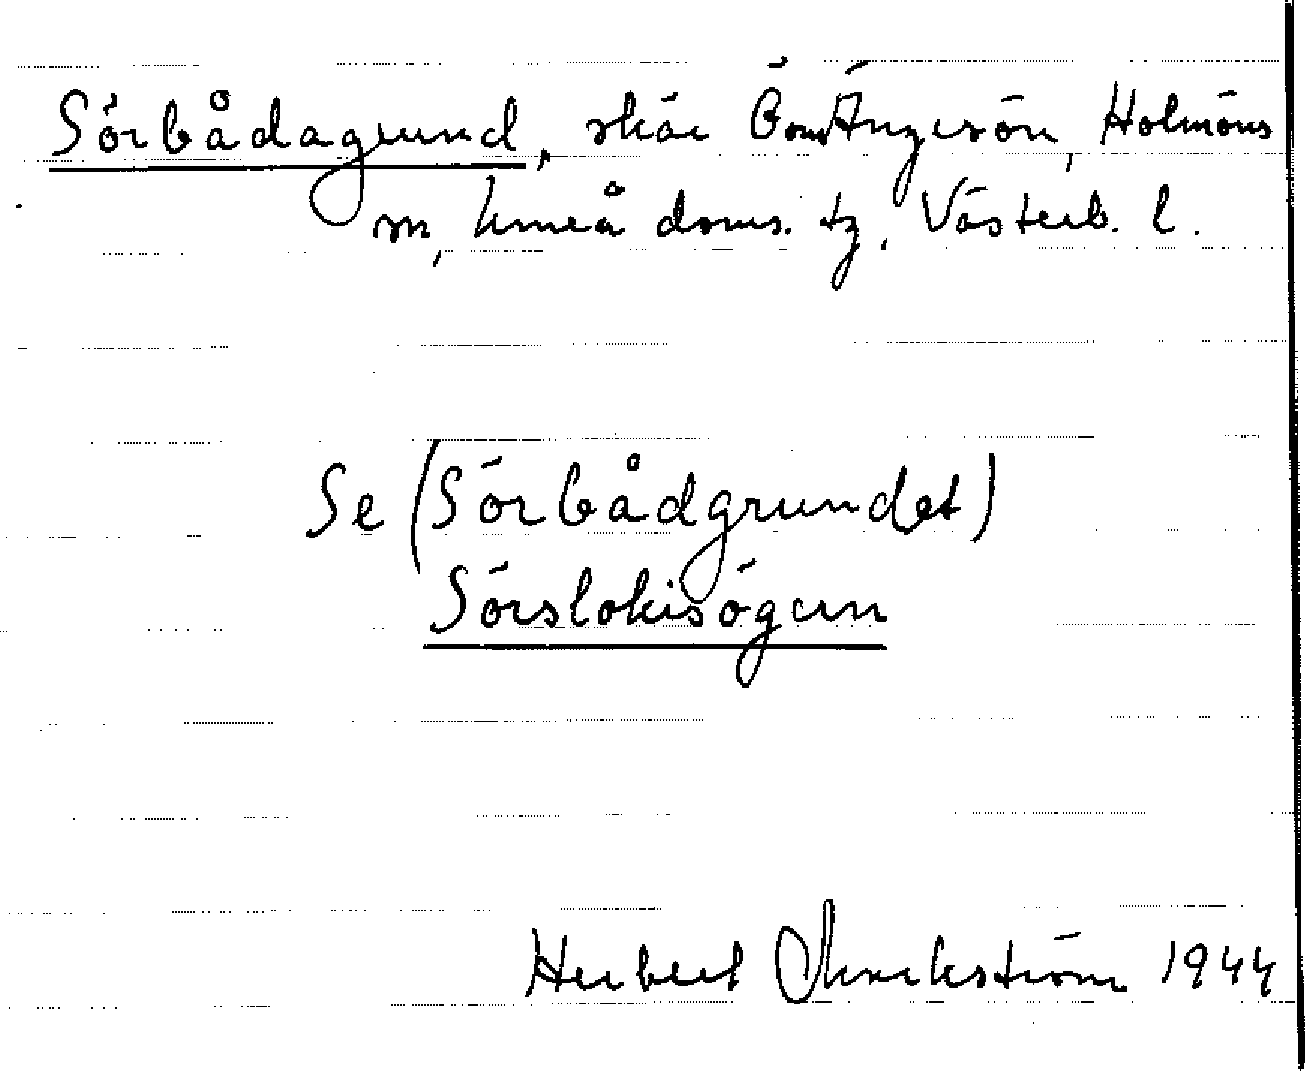 Sörbådagrund, skär Ö om Ängesön, Holmöns
sn, Umeå doms. tg, Västerb. l.
Se (Sörbådgrundet)
Sörslokisögern
Herbert Markström 1944